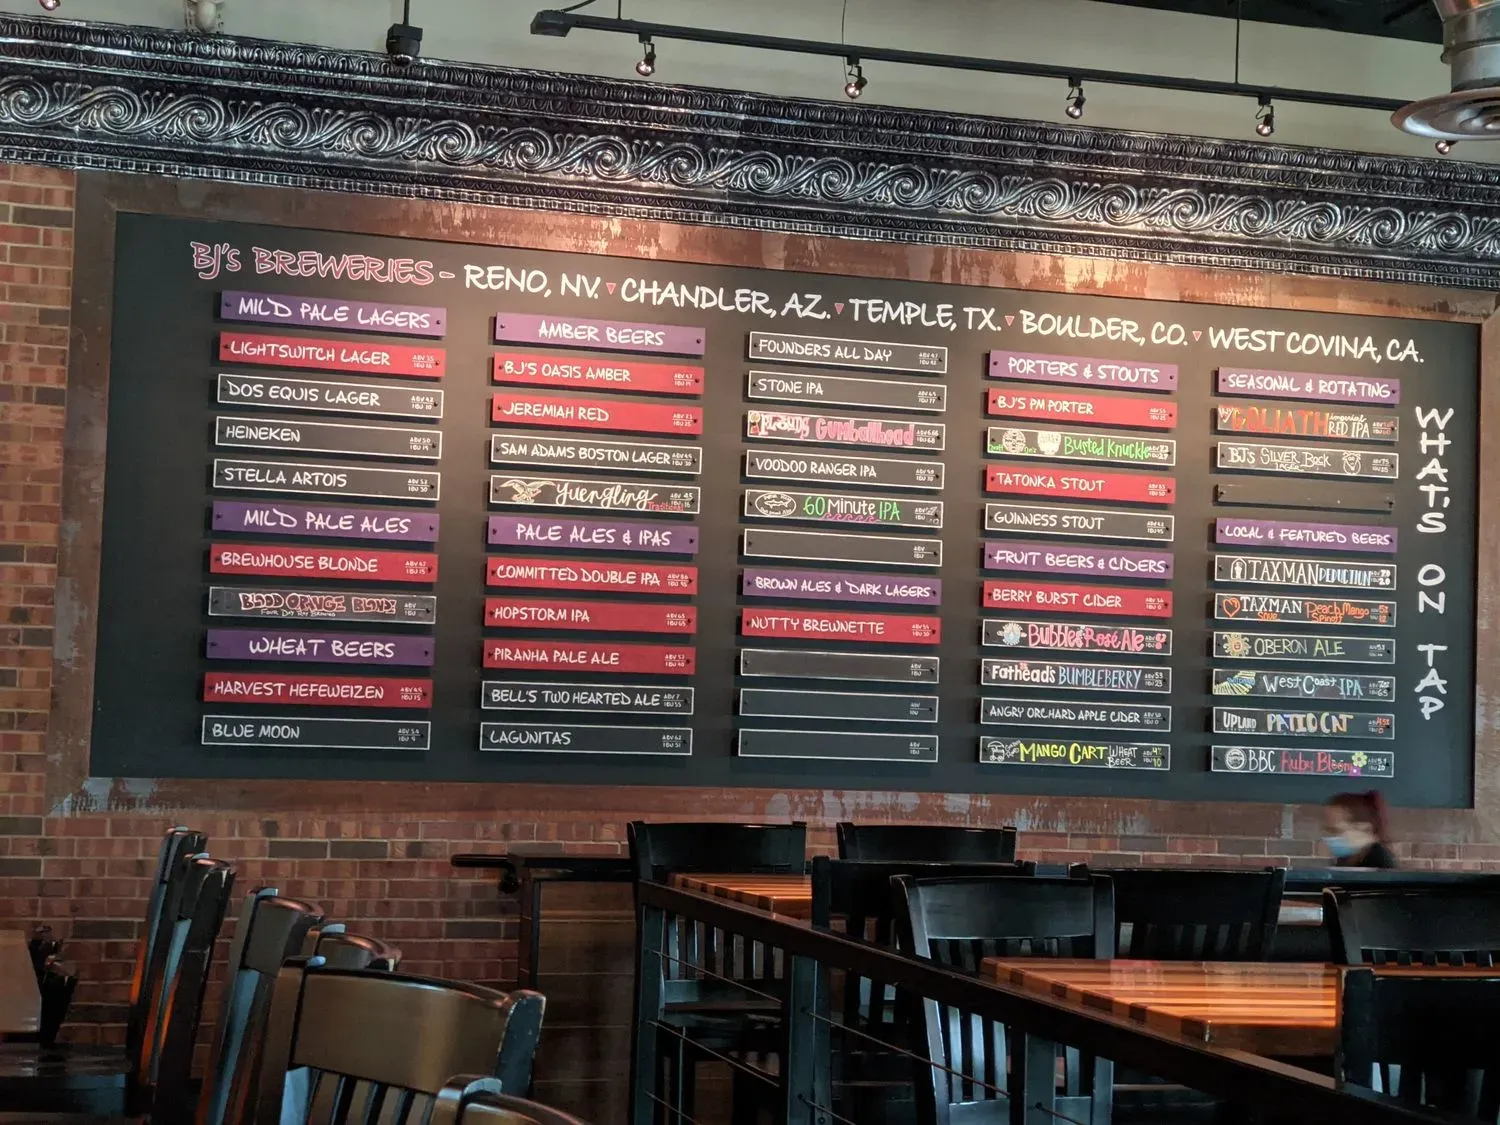 BJ's BREWERIES - RENO, NV. CHANDLER, AZ. TEMPLE, TX. BOULDER, CO. WEST COVINA, CA.
MILD PALE LAGERS
LIGHTSWITCH LAGER
DOS EQUIS LAGER
HEINEKEN
STELLA ARTOIS
MILD PALE ALES
BREWHOUSE BLONDE
BLOOD ORANGE BLONDE
WHEAT BEERS
HARVEST HEFEWEIZEN
BLUE MOON
AMBER BEERS
BJ'S OASIS AMBER
JEREMIAH RED
SAM ADAMS BOSTON LAGER
Yuengling
Traditional
PALE ALES & IPAS
COMMITTED DOUBLE IPA
HOPSTORM IPA
PIRANHA PALE ALE
BELL'S TWO HEARTED ALE
LAGUNITAS
FOUNDERS ALL DAY
STONE IPA
FLOYDS Gumballhead
VOODOO RANGER IPA
60 Minute IPA
ABV
IBU
BROWN ALES & DARK LAGERS
NUTTY BREWNETTE
ABV
IBU
ABV
IBU
ABV
IBU
PORTERS & STOUTS
BJ'S PM PORTER
Busted Knuckle
TATONKA STOUT
GUINNESS STOUT
FRUIT BEERS & CIDERS
BERRY BURST CIDER
Bubbles Rosé Ale
Fathead's BUMBLEBERRY
ANGRY ORCHARD APPLE CIDER
MANGO CART WHEAT
BEER
SEASONAL & ROTATING
GOLIATH imperial
RED IPA
BJ's SILVER Back
LAGER
LOCAL & FEATURED BEERS
TAXMAN DEDUCTION
TAXMAN Peach Mango
OBERON ALE
West Coast IPA
UPLAND PATIO CAT
BBC Ruby Bloom
WHAT'S ON TAP